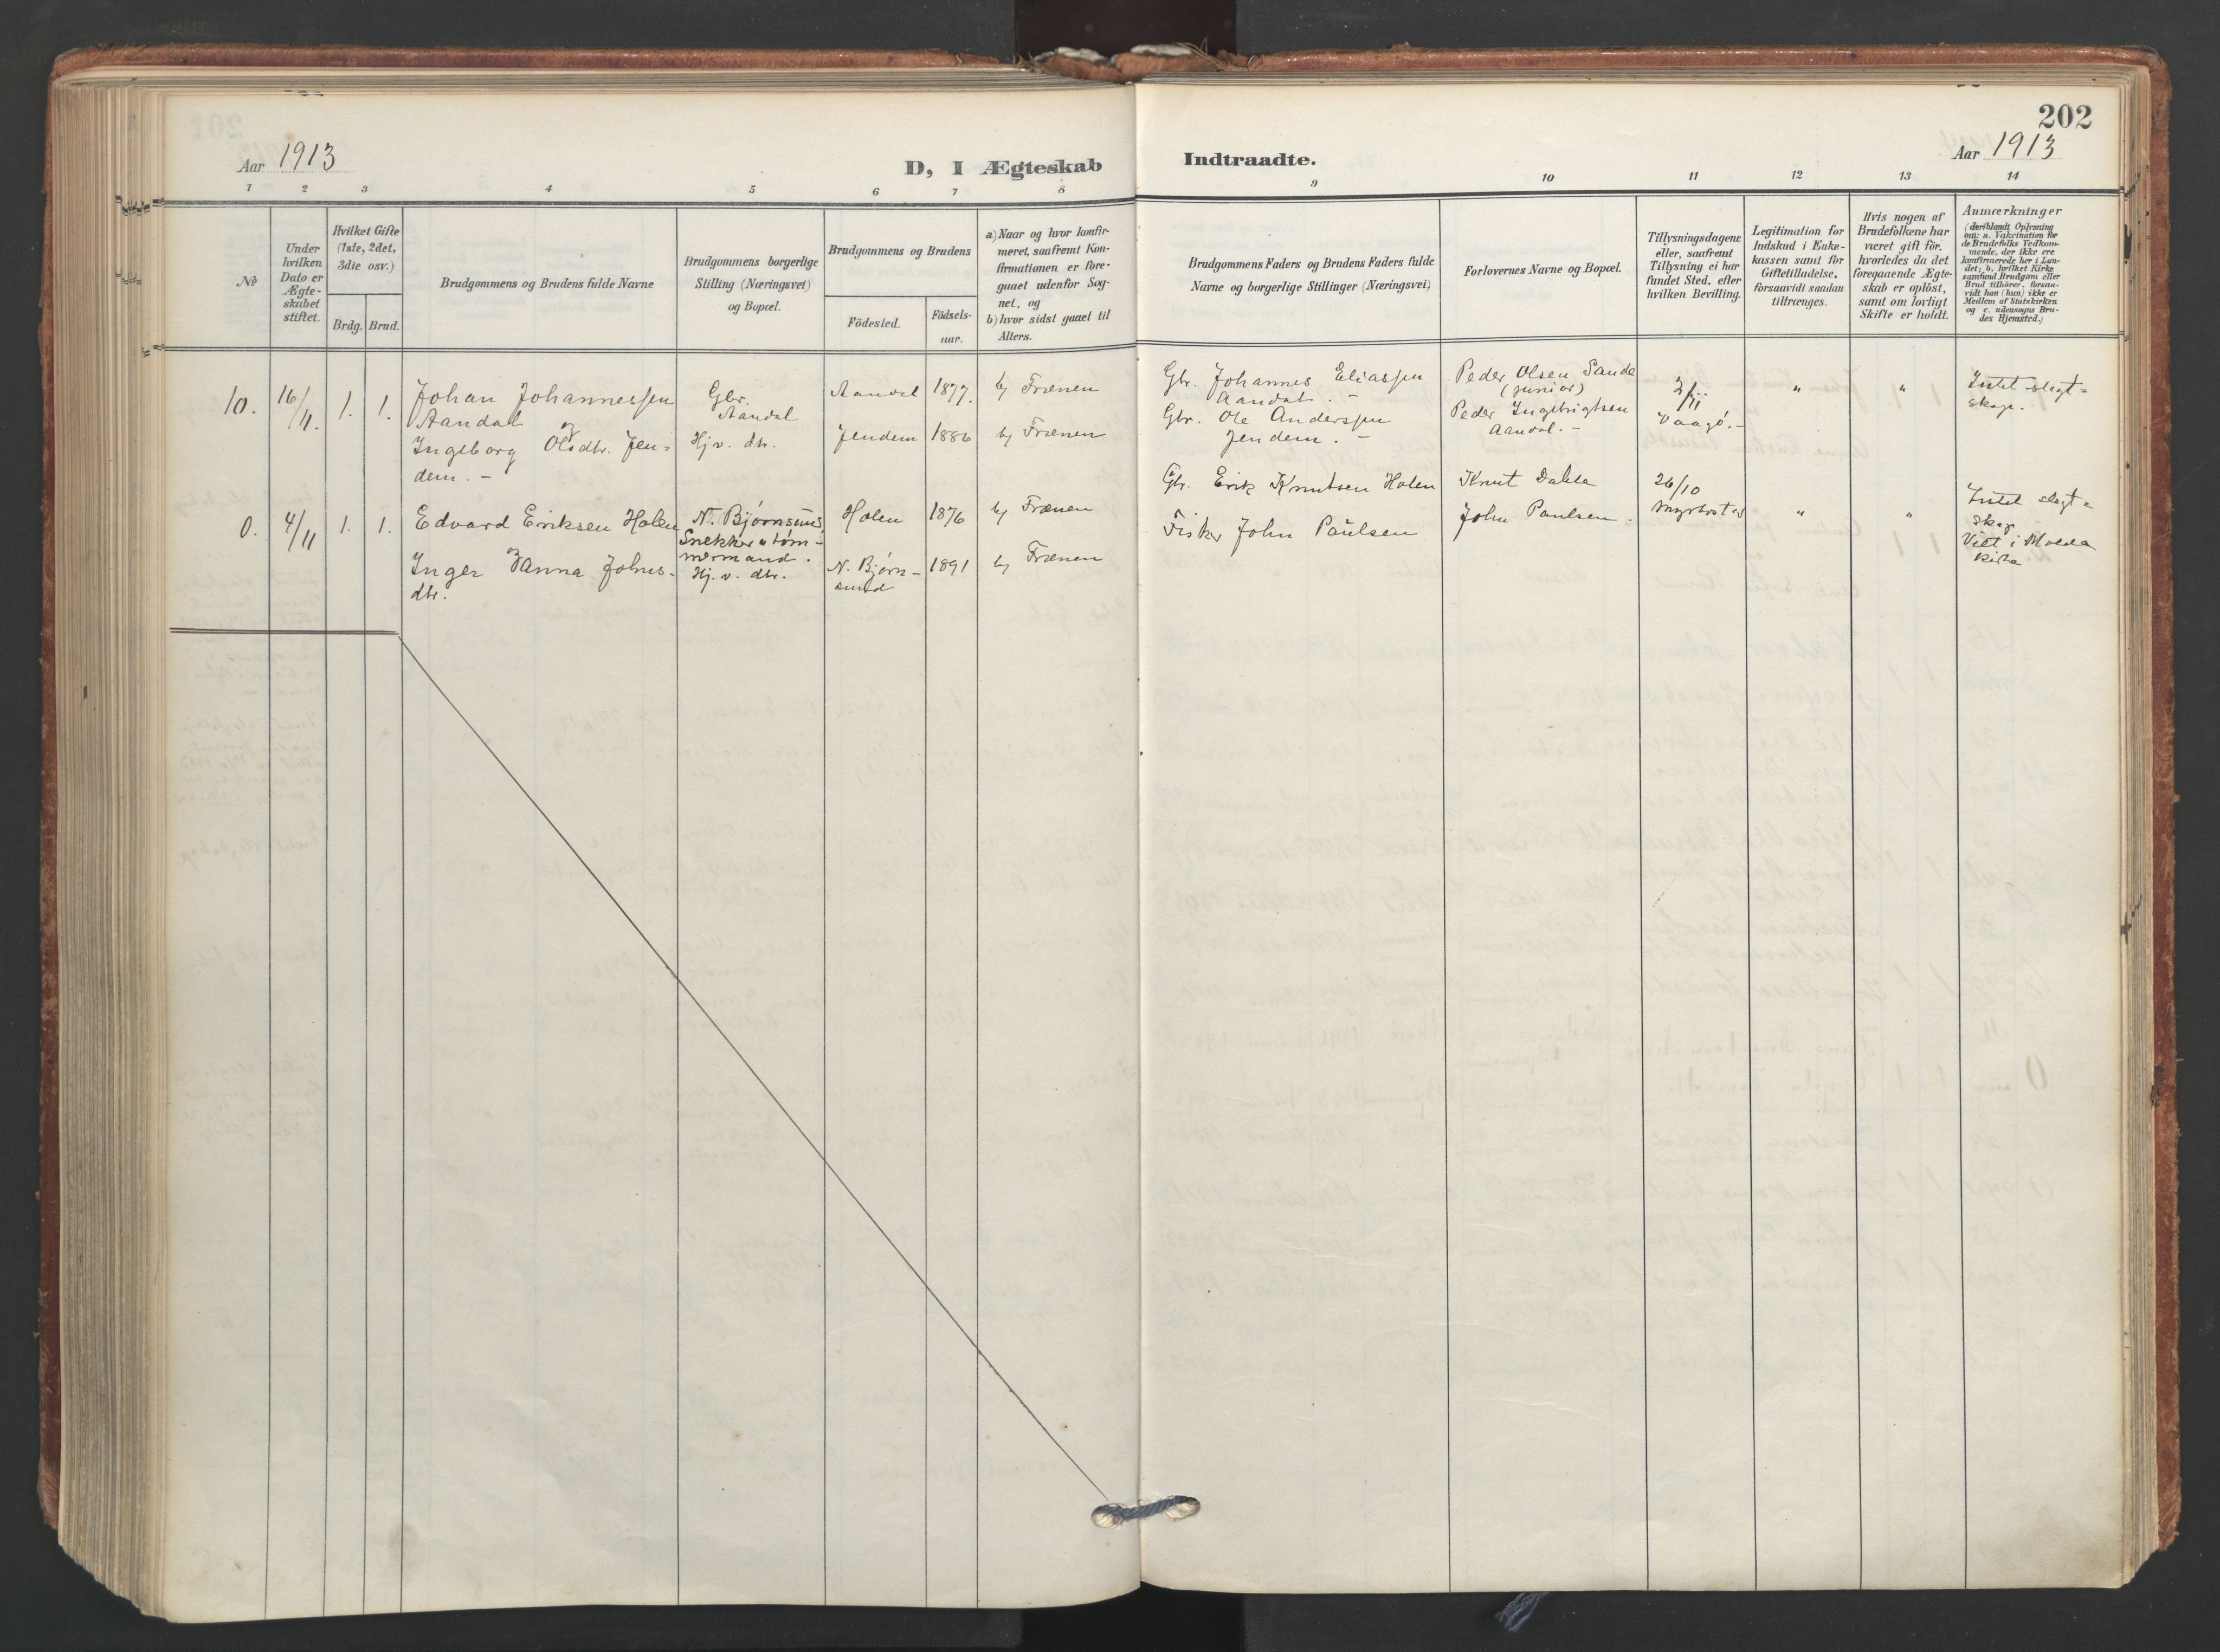 202
Aar 1913
D, I Ægteskab Indtraadte.
Aar 1913
1 2 3 4 5 6 7 8 9 10 11 12 13 14
No
Under
hvilken
Dato er
Ægte-
skabet
stiftet.
Hvilket Gifte
(1ste, 2det,
3die osv.)
Brdg. Brud.
Brudgommens og Brudens fulde Navne
Brudgommens borgerlige
Stilling (Næringsvei)
og Bopæl.
Brudgommens og Brudens
Födested.
Födsels-
aar.
a) Naar og hvor konfir-
meret, saafremt Kon-
firmationen er fore-
gaaet udenfor Sog-
net, og
b) hvor sidst gaaet til
Alters.
Brudgommens Faders og Brudens Faders fulde
Navne og borgerlige Stillinger (Næringsvei)
Forlovernes Navne og Bopæl.
Tillysningsdagene
eller, saafremt
Tillysning ei har
fundet Sted, efter
hvilken Bevilling.
Legitimation for
Indskud i Enke-
kassen samt for
Giftetilladelse,
forsaavidt saadan
tiltrænges.
Hvis nogen af
Brudefolkene har
været gift för,
hvorledes da det
foregaaende Ægte-
skab er oplöst,
samt om lovligt
Skifte er holdt.
Anmærkninger
(deriblandt Oplysning
om: a. Vakcination for
de Brudefolks Vedkom-
mende, der ikke ere
konfirmerede her i Lan-
det; b. hvilket Kirke-
samfund Brudgom eller
Brud tilhörer, forsaa-
vidt han (hun) ikke er
Medlem af Statskirken
og c. udensogns Bru-
des Hjemsted.)
10. 16/11. 1. 1.
Johan Johannessen
Aandal
og
Ingeborg Olsdtr. Jen-
dem. -
Gbr.
Aandal
Hj. v. dtr.
Aandal 1877. b) Frænen
Jendem 1886 b) Frænen
Gbr. Johannes Eliassen
Aandal. -
Gbr. Ole Anderssen
Jendem. -
Peder Olsen Sande
(junior)
Peder Ingebrigtsen
Aandal. -
2/11
Vaagø. -
" "
Intet slegt-
skap.
0. 4/11 1. 1.
Edvard Eriksen Holen
og
Inger Anna Johns-
dtr.
N. Bjørnsund
Snekker & tøm-
mermand.
Hj. v. dtr.
Holen 1876 b) Frænen
N. Bjørn-
sund 1891 b) Frænen
Gbr. Erik Knutsen Holen
Fisker John Paulsen
Knut Dahle
John Paulsen.
26/10
" "
Intet slegt-
skap
Viet i Molde
Kirke